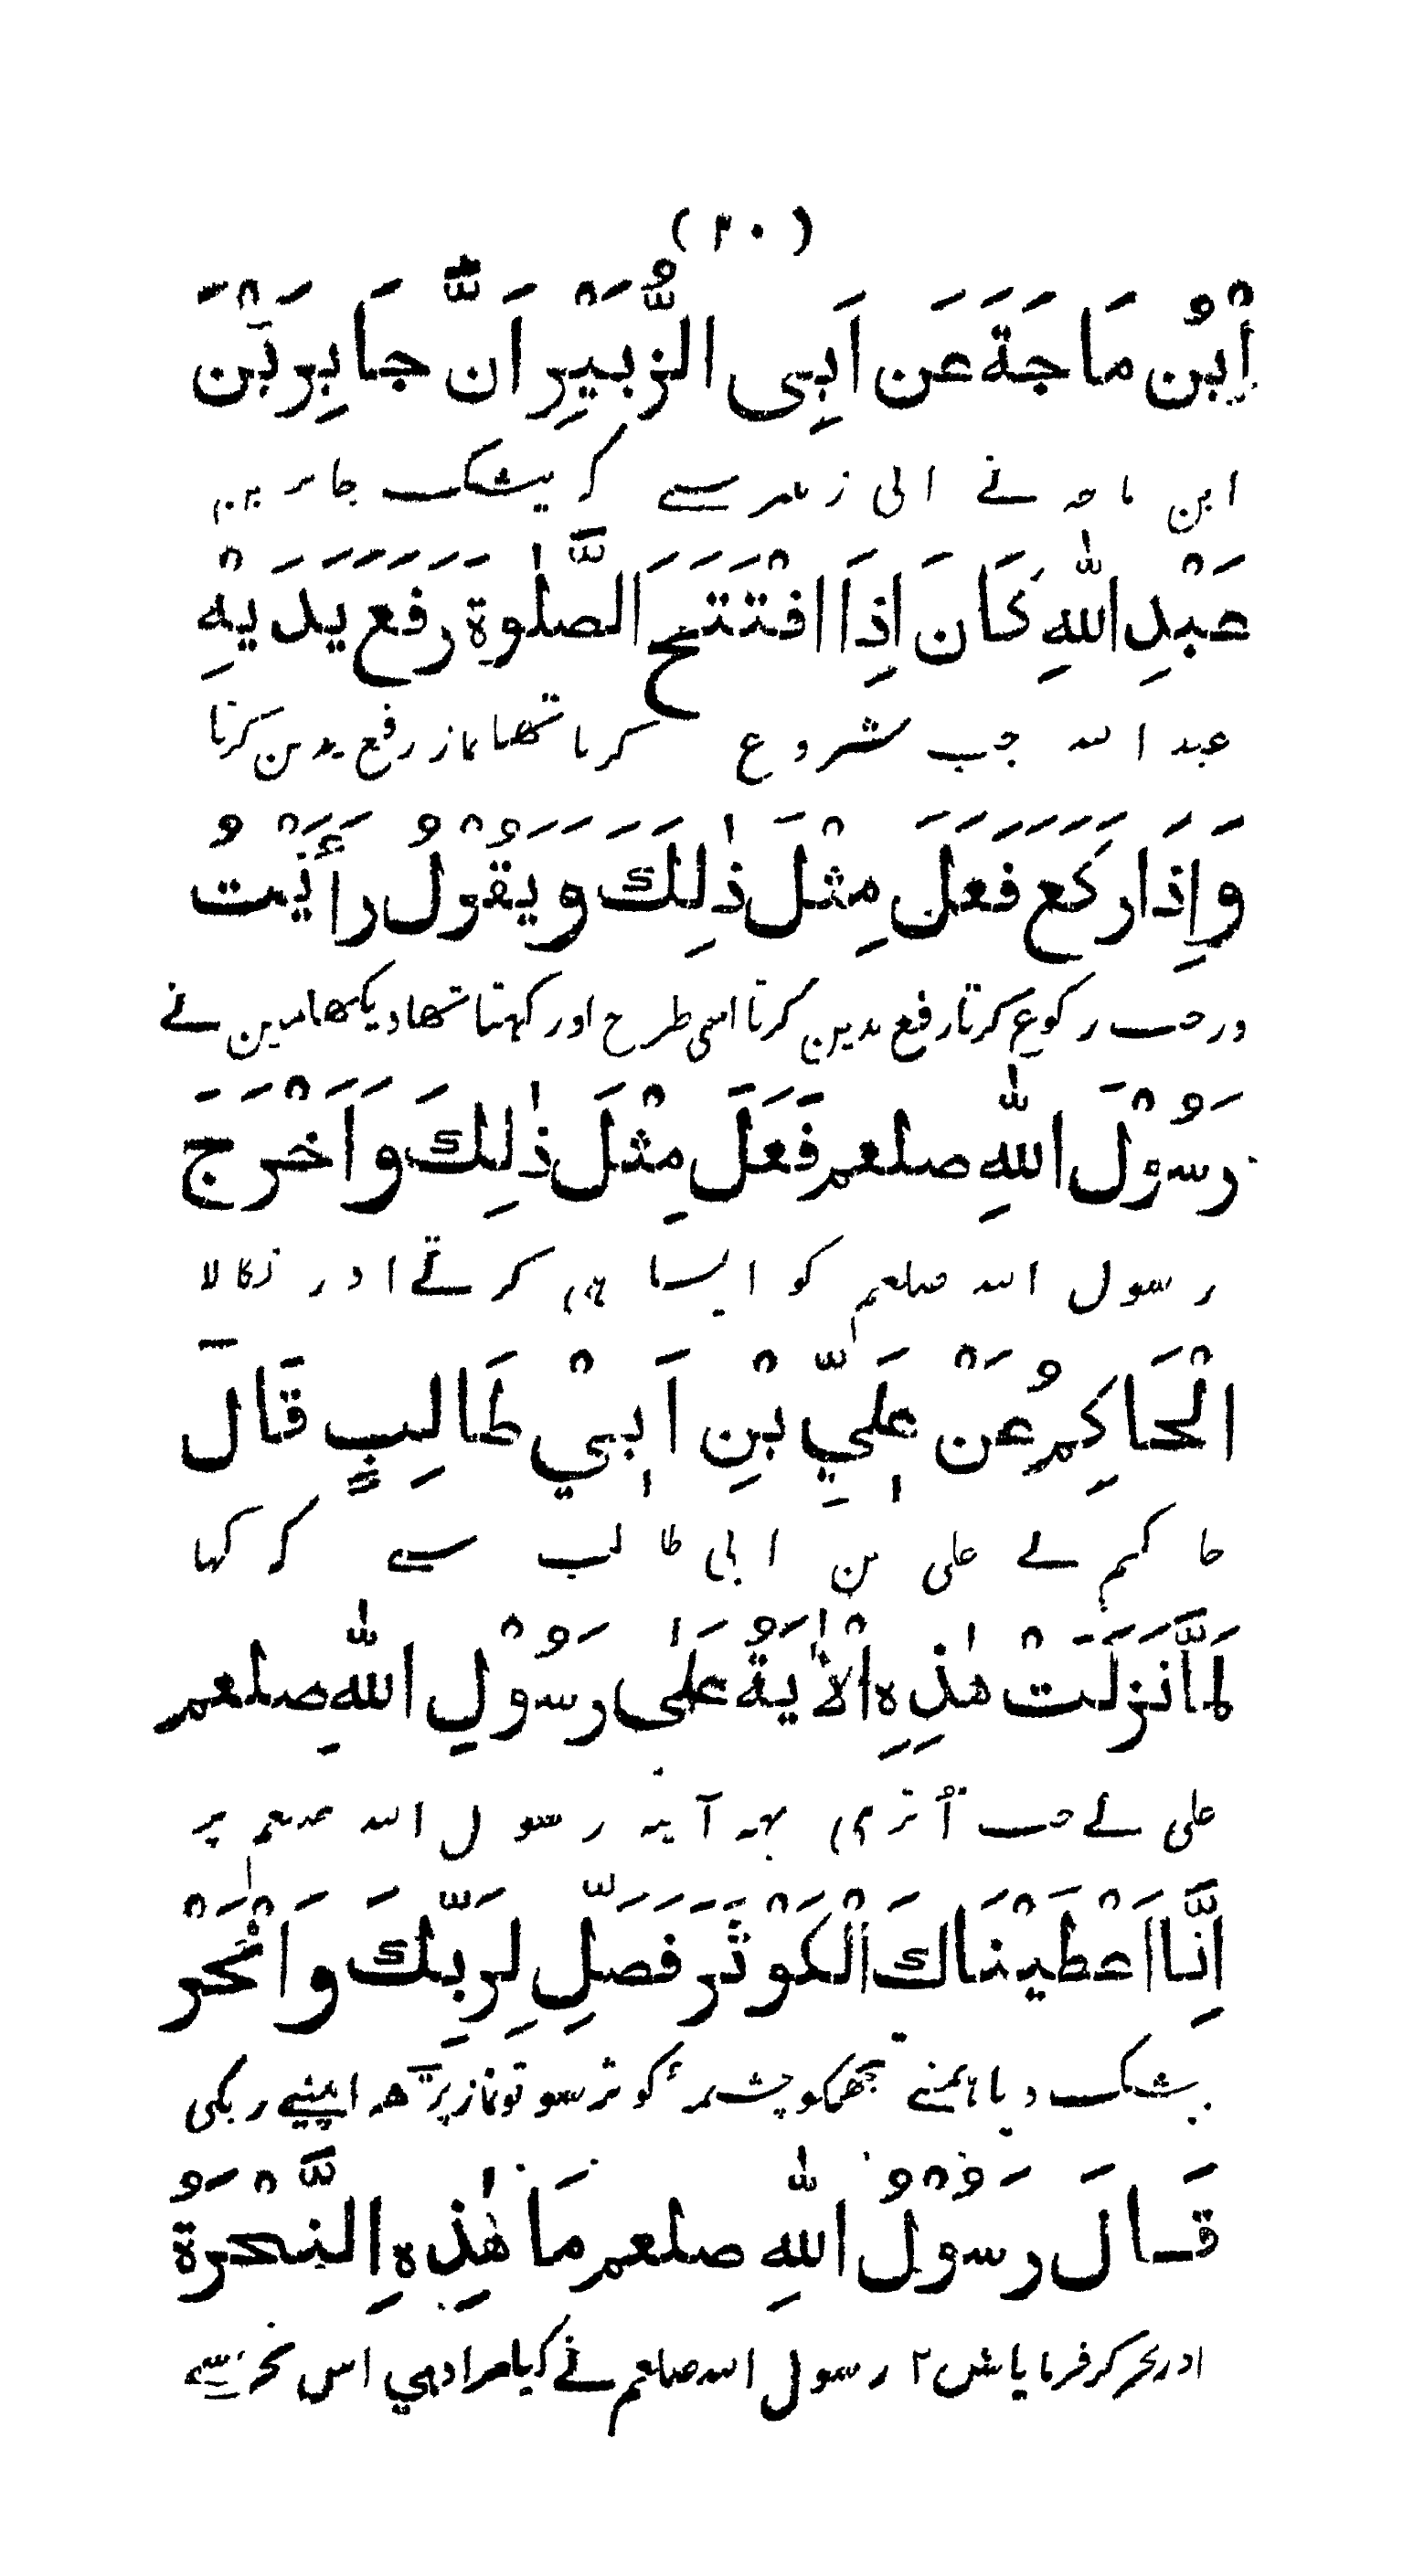 (۲۰)
اِبْنُ مَاجَةَ عَنَ اَبِى الزُّبَيْرِ اَنَّ جَابِرَ بْنَ
ابن ماجہ نے ابی زبیر سے کہ بیشک جابر بن
عَبْدِ اللّٰهِ كَانَ اِذَا افْتَتَحَ الصَّلٰوةَ رَفَعَ يَدَيْهِ
عبد اللہ جب شروع کرتا تھا نماز رفع یدین کرتا
وَاِذَا رَكَعَ فَعَلَ مِثْلَ ذٰلِكَ وَيَقُوْلُ رَأَيْتُ
ورجب رکوع کرتا رفع یدین کرتا اسی طرح اور کہتا تھا دیکھا مین نے
رَسُوْلَ اللّٰهِ صلعم فَعَلَ مِثْلَ ذٰلِكَ وَاَخْرَجَ
رسول اللہ صلعم کو ایسا ہی کرتے اور نکالا
الْحَاكِمُ عَنْ عَلِيِّ بْنِ اَبِيْ طَالِبٍ قَالَ
حاکم نے علی بن ابی طالب سے کہ کہا
لَمَّا نَزَلَتْ هٰذِهِ الْاٰيَةُ عَلٰى رَسُوْلِ اللّٰهِ صلعم
علی نے جب اُتری یہہ آیہ رسول اللہ صلعم پر
اِنَّا اَعْطَيْنَاكَ الْكَوْثَرَ فَصَلِّ لِرَبِّكَ وَانْحَرْ
بیشک دیا ہمنے تجھکو چشمہٴ کوثر سو تو نماز پڑھ اپنے ربکی
قَالَ رَسُوْلُ اللّٰهِ صلعم مَا هٰذِهِ النَّحْرَةُ
اور نحر کر فرمایا ش ۲ رسول اللہ صلعم نے کیا مراد ہی اس نحر سے